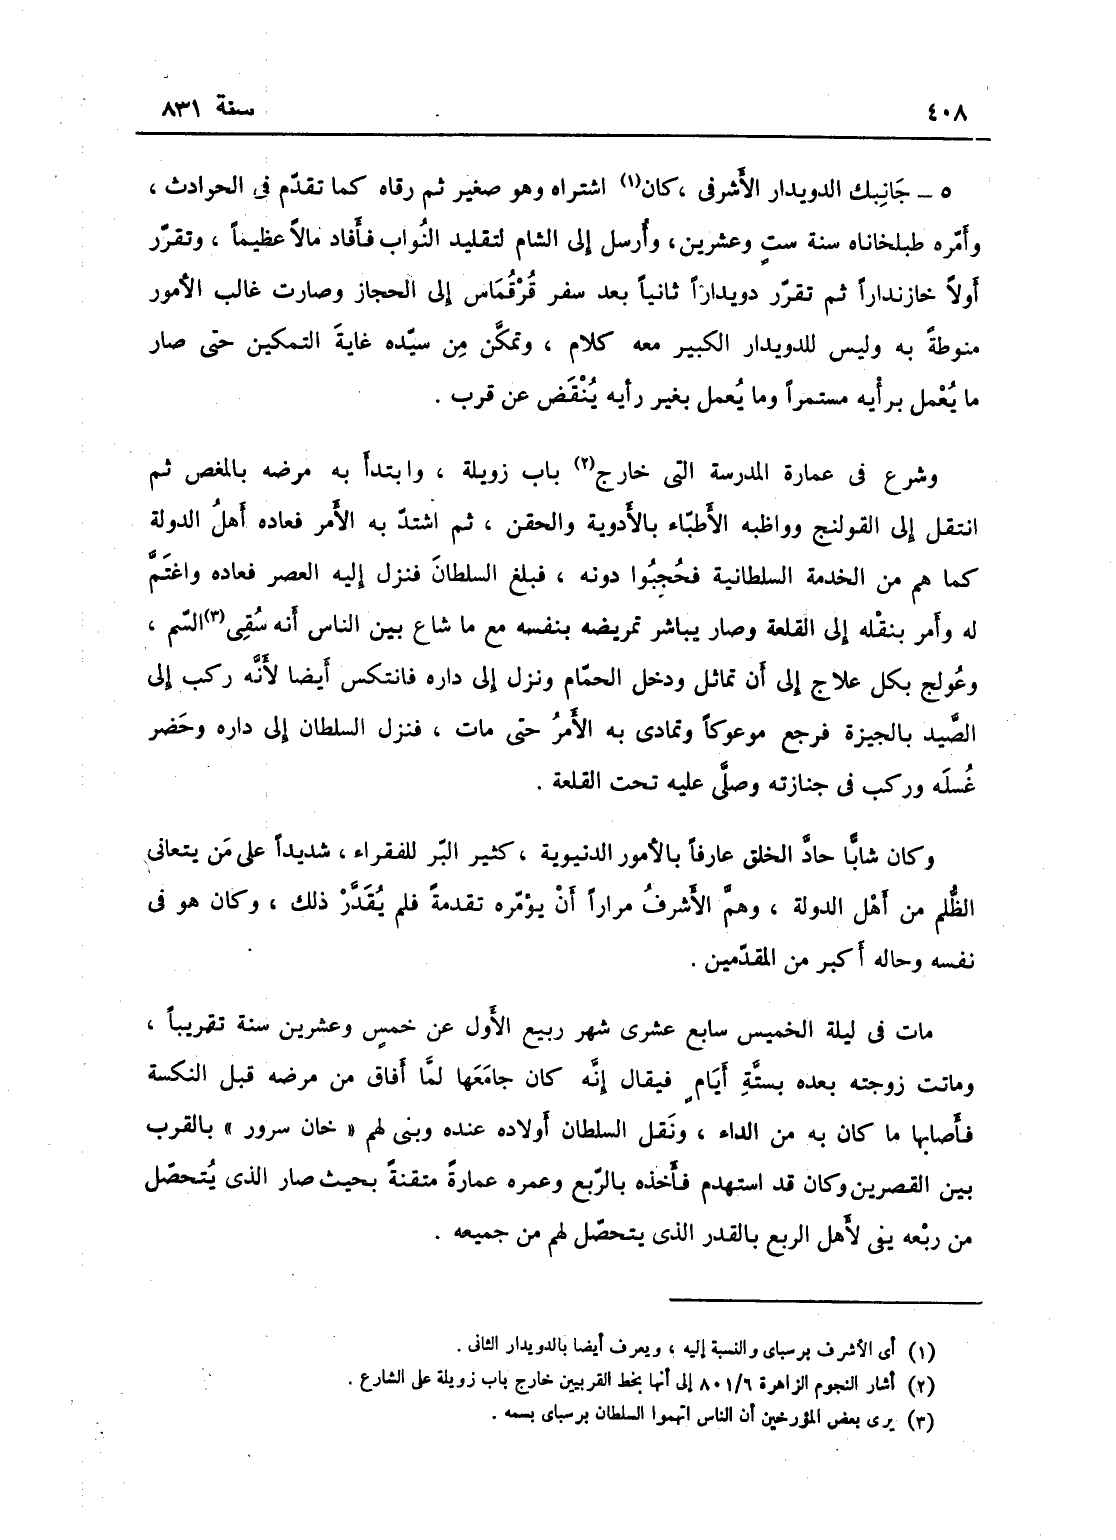 ٤٠٨ سنة ٨٣١
٥ ــ جَانِبك الدويدار الأَشرفى ،كان(١) اشتراه وهو صغير ثم رقاه كما تقدّم فى الحوادث ،
وأَمّره طبلخاناه سنة ستٍ وعشرين، وأُرسل إلى الشام لتقليد النُواب فأَفاد مالاً عظيماً ، وتقرّر
أَولاً خازنداراً ثم تقرّر دويداراً ثانياً بعد سفر قُرْقُمَاس إلى الحجاز وصارت غالب الأمور
منوطةً به وليس للدويدار الكبير معه كلام ، وتمكَّن مِن سيّده غايةَ التمكين حتى صار
ما يُعْمل برأْيه مستمراً وما يُعمل بغير رأيه يُنْقَض عن قرب .
وشرع فى عمارة المدرسة التى خارج(٢) باب زويلة ، وابتدأَ به مرضه بالمغص ثم
انتقل إلى القولنج وواظبه الأَطبّاء بالأَدوية والحقن ، ثم اشتدّ به الأَمر فعاده أَهلُ الدولة
كما هم من الخدمة السلطانية فحُجِبُوا دونه ، فبلغ السلطانَ فنزل إليه العصر فعاده واغتَمَّ
له وأَمر بنقْله إلى القلعة وصار يباشر تمريضه بنفسه مع ما شاع بين الناس أَنه سُقِى(٣)السّم ،
وعُولج بكل علاج إلى أَن تماثل ودخل الحمّام ونزل إلى داره فانتكس أَيضا لأَنَّه ركب إلى
الصَّيد بالجيزة فرجع موعوكاً وتمادى به الأَمرُ حتى مات ، فنزل السلطان إلى داره وحَضر
غُسلَه وركب فى جنازته وصلَّى عليه تحت القلعة .
وكان شابًّا حادَّ الخلق عارفاً بالأمور الدنيوية ، كثير البّر للفقراء ، شديداً على مَن يتعانى
الظُّلم من أَهْل الدولة ، وهمَّ الأَشرفُ مراراً أَنْ يؤمّره تقدمةً فلم يُقَدَّرْ ذلك ، وكان هو فى
نفسه وحاله أَكبر من المقدّمين .
مات فى ليلة الخميس سابع عشرى شهر ربيع الأَول عن خمسٍ وعشرين سنة تقريباً ،
وماتت زوجته بعده بستَّةِ أَيَامٍ فيقال إنَّه كان جامَعَها لمَّا أَفاق من مرضه قبل النكسة
فأَصابها ما كان به من الداء ، ونَقل السلطان أَولاده عنده وبنى لهم « خان سرور » بالقرب
بين القصرين وكان قد استهدم فأَخذه بالرّبع وعمره عمارةً متقنةً بحيث صار الذى يُتحصّل
من ربْعه يفى لأَهل الربع بالقدر الذى يتحصّل لهم من جميعه .
(١) أى الأشرف برسباى والنسبة إليه ، ويعرف أيضا بالدويدار الثانى .
(٢) أشار النجوم الزاهرة ٨٠١/٦ إلى أنها بخط القربيين خارج باب زويلة على الشارع .
(٣) يرى بعض المؤرخين أن الناس اتهموا السلطان برسباى بسمه .